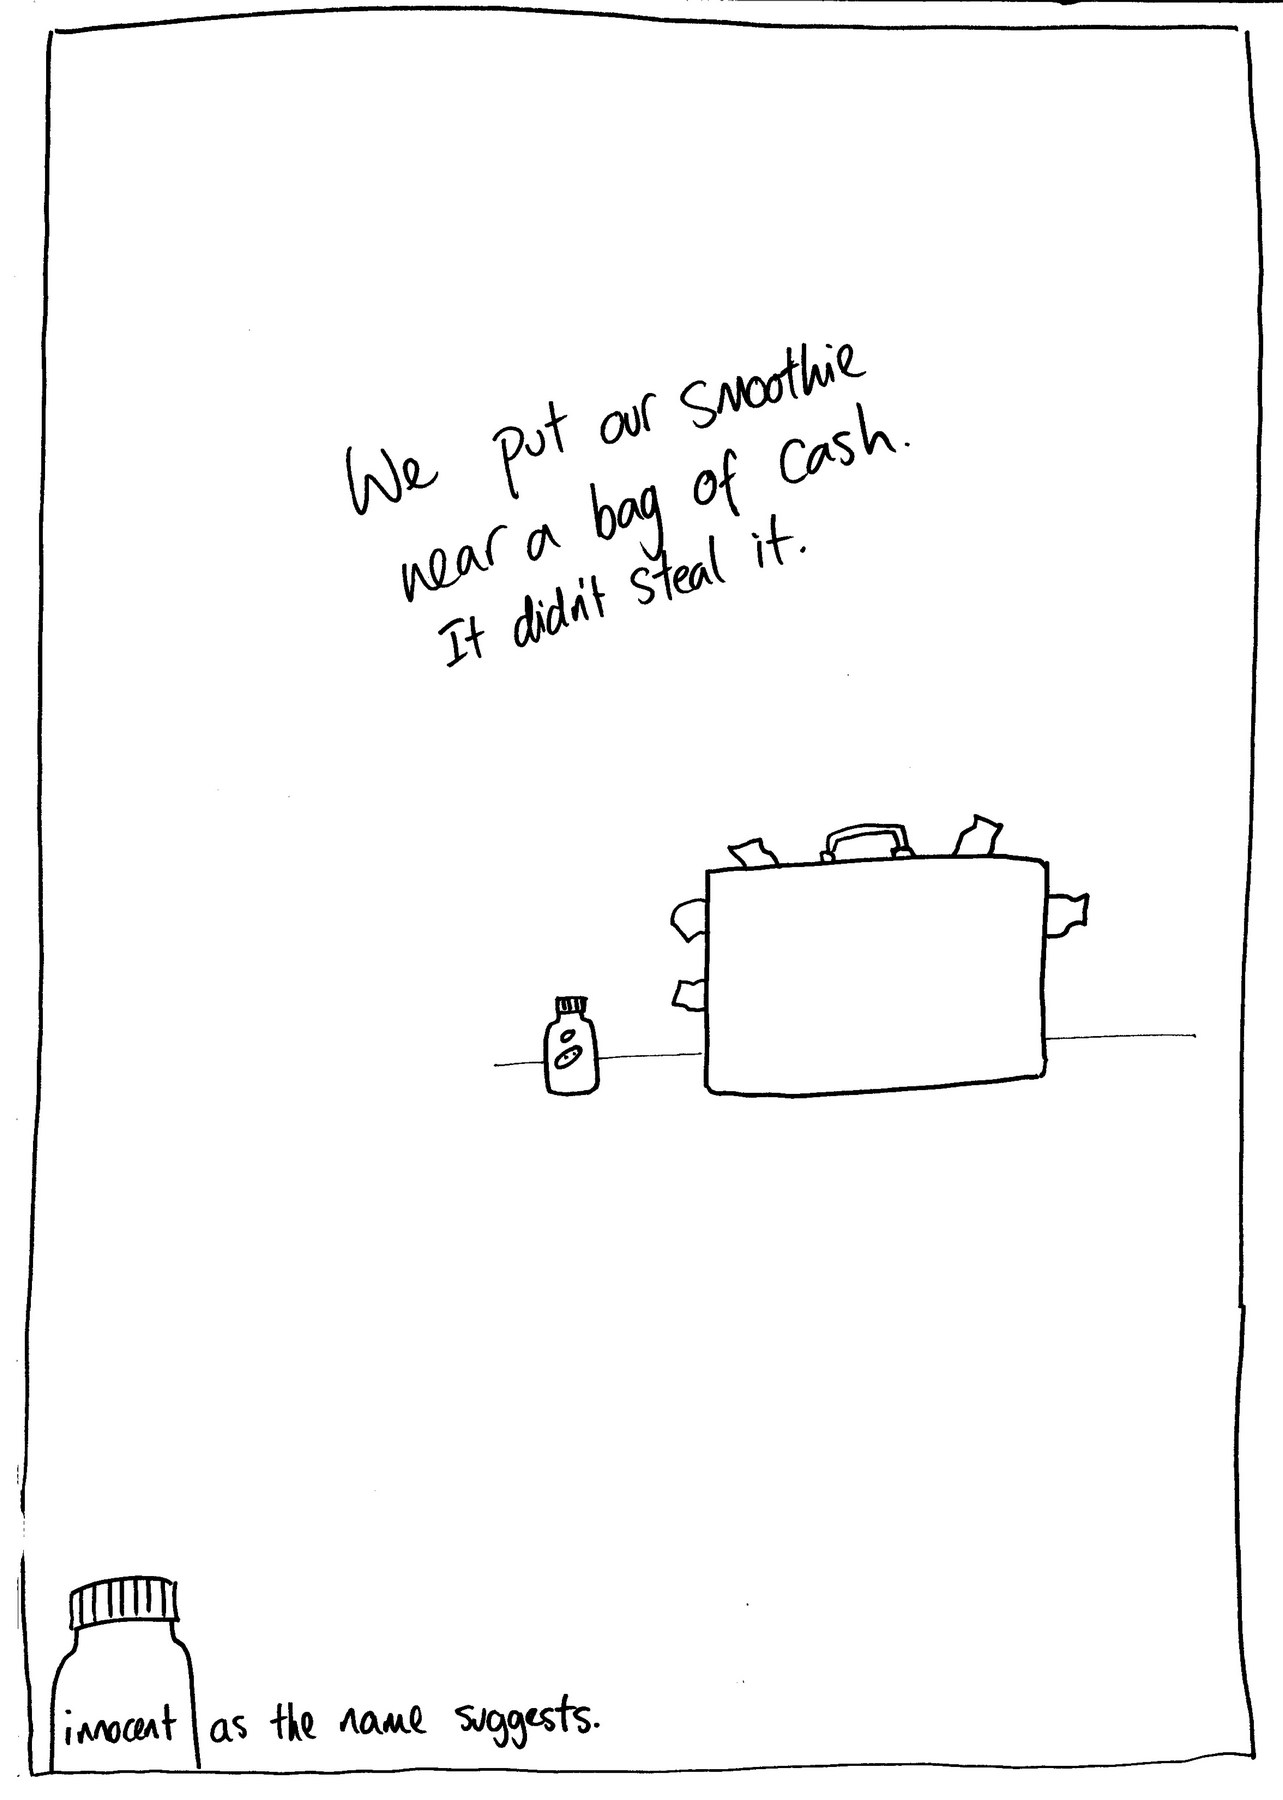 We put our smoothie
near a bag of cash.
It didn't steal it.
innocent as the name suggests.